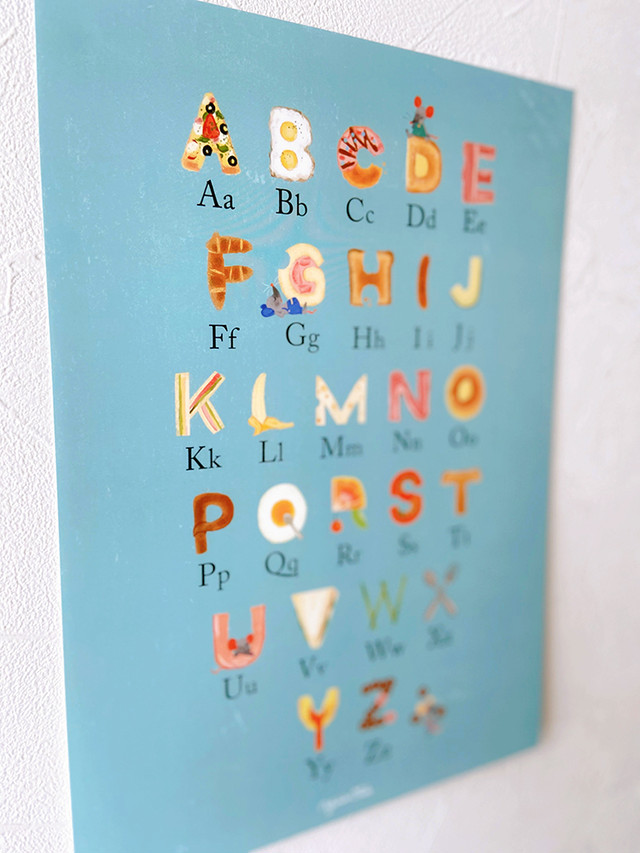 A B C D E
Aa Bb Cc Dd Ee
F G H I J
Ff Gg Hh Ii Jj
K L M N O
Kk Ll Mm Nn Oo
P Q R S T
Pp Qq Rr Ss Tt
U V W X
Uu Vv Ww Xx
Y Z
Yy Zz